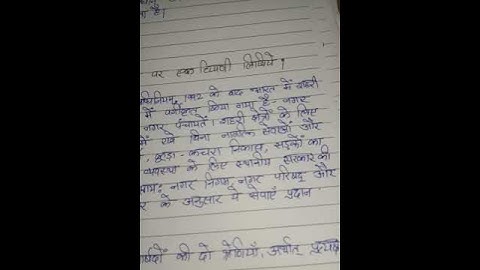 है।
पर एक टिप्पणी लिखिये।
अधिनियम, 1992 के बाद भारत में शहरी
में वर्गीकृत किया गया है:- नगर
नगर पंचायत। शहरी क्षेत्रों के लिए
में एवं बिना नागरिक सेवाओं और
कूड़ा-कचरा निकास, सड़कों का
व्यवस्था के लिए स्थानीय सरकार की
नगर निगम, नगर परिषद् और
के अनुसार ये सेवाएं प्रदान
की दो श्रेणियाँ, अर्थात् प्रत्यक्ष